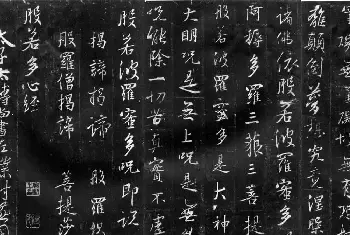 離顛倒夢想究竟涅槃
諸佛依般若波羅蜜多
阿耨多羅三藐三菩提
般若波羅蜜多是大神
大明咒是無上咒是無
咒能除一切苦真實不虛
般若波羅蜜多咒即說
揭諦揭諦 般羅揭
般羅僧揭諦 菩提莎
般若多心經